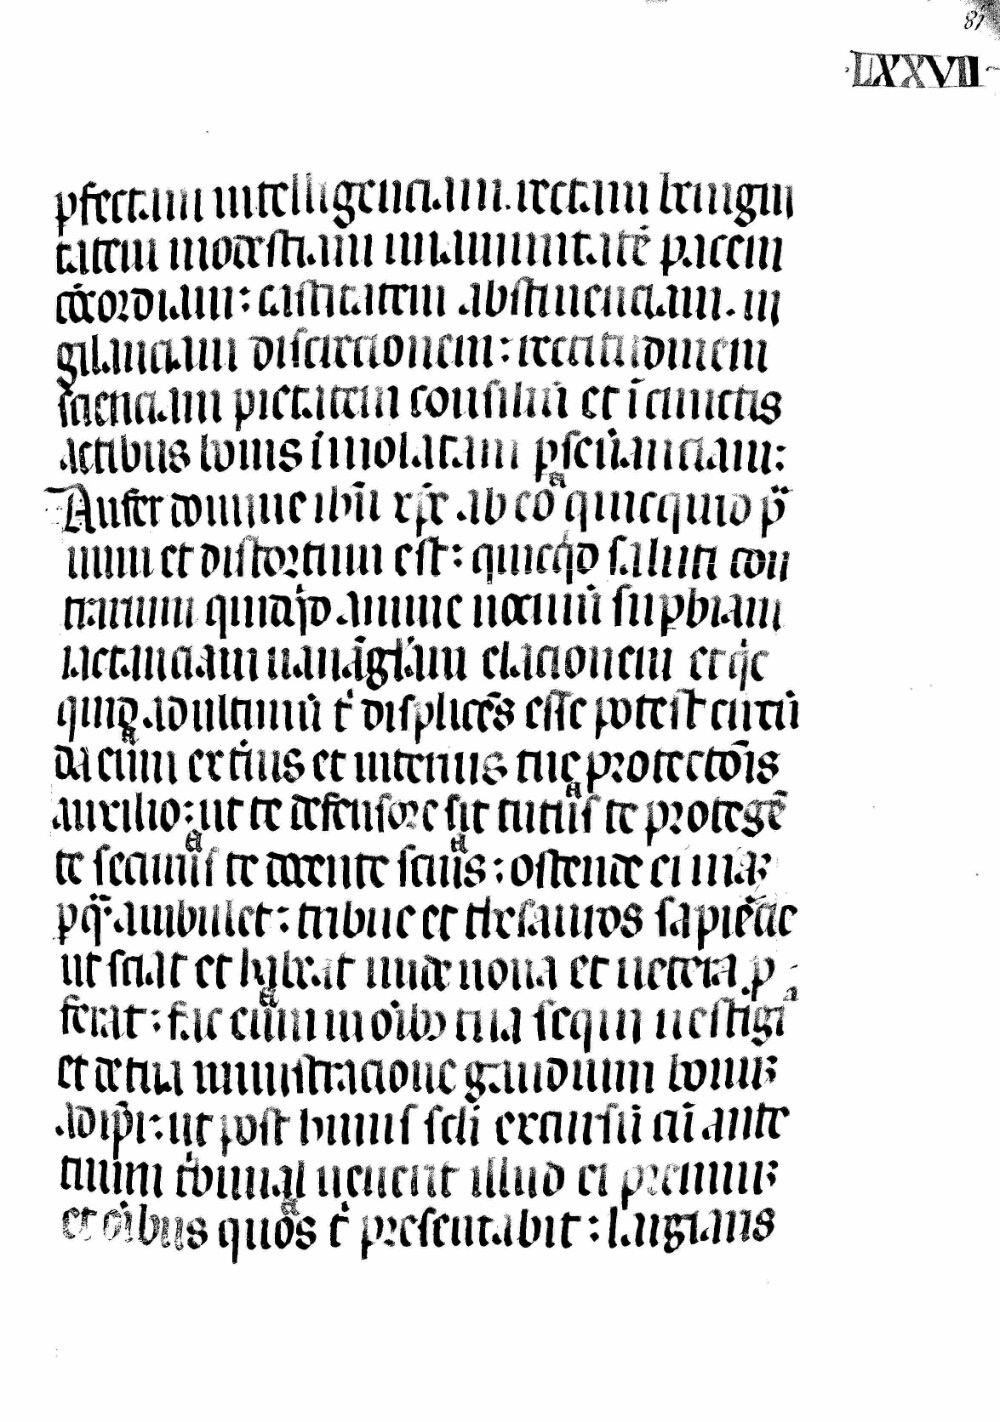 81
·LXXVII·
ꝑfectam intelligenciam. rectam benigni
tatem modestiam unanimitatē pacem
cōcordiam: castitatem abstinenciam. ui
gilanciam discrecionem: rectitudinem
scienciam pietatem consiliū et ī cunctis
actibus bonis inuiolatam ꝑseūanciam:
Aufer domine ihū xp̄e ab eo quicquid p̄
uum et distortum est: quicq̇d saluti con
trarium quidq̇d anime nociuū suꝑbiam
iactanciam uanāgl̄am elacionem et q̇c
quid adultimū t̄ displicēs esse potest custū
da eum exteri̾us et interius tue protectōis
auxilio: ut te defensore sit tutus te protegēte
te securus te docente scius: ostende ei uiā
ꝑ q̄ ambulet: tribue et thesauros sapiēcie
ut sciat et habeat unde noua et uetera ꝓ
ferat: fac eum in oībꝰ tua sequi uestigia
et de tua ministracione gaudium bonuꝫ
adip̄i: ut post huius scl̄i excursū cū ante
tuum tbunal uenerit illud ei premiuꝫ
et oībus quos t̄ presentabit: largiaris